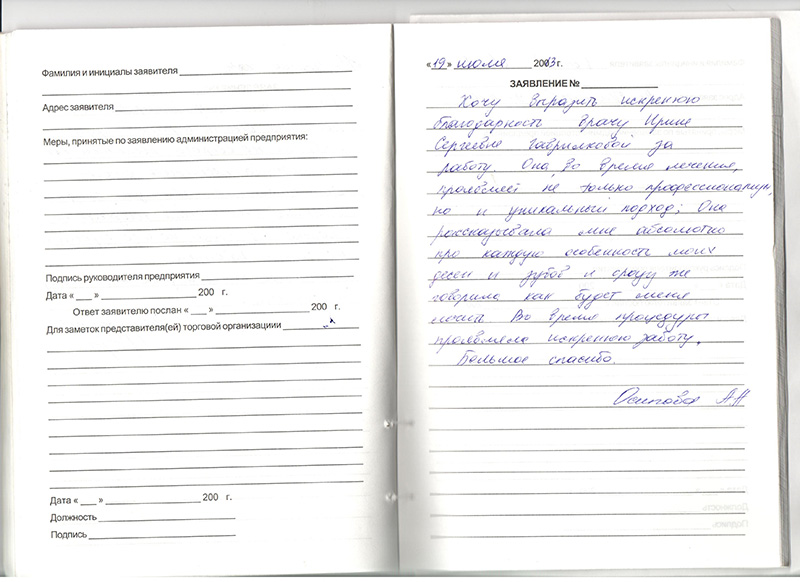 Фамилия и инициалы заявителя
Адрес заявителя
Меры, принятые по заявлению администрацией предприятия:
Подпись руководителя предприятия
Дата « » 200 г.
Ответ заявителю послан « » 200 г.
Для заметок представителя(ей) торговой организациии
Дата « » 200 г.
Должность
Подпись
«19» июля 2013г.
ЗАЯВЛЕНИЕ №
Хочу выразить искреннюю
благодарность врачу Ирине
Сергеевне Гавриловой за
работу. Она, во время лечения,
проявляет не только профессионализм,
но и уникальный подход; Она
рассказывала мне абсолютно
про каждую особенность моих
десен и зубов и сразу же
говорила как будет меня
лечить. Во время процедуры
проявляла искреннюю заботу.
Большое спасибо.
Осипова АН